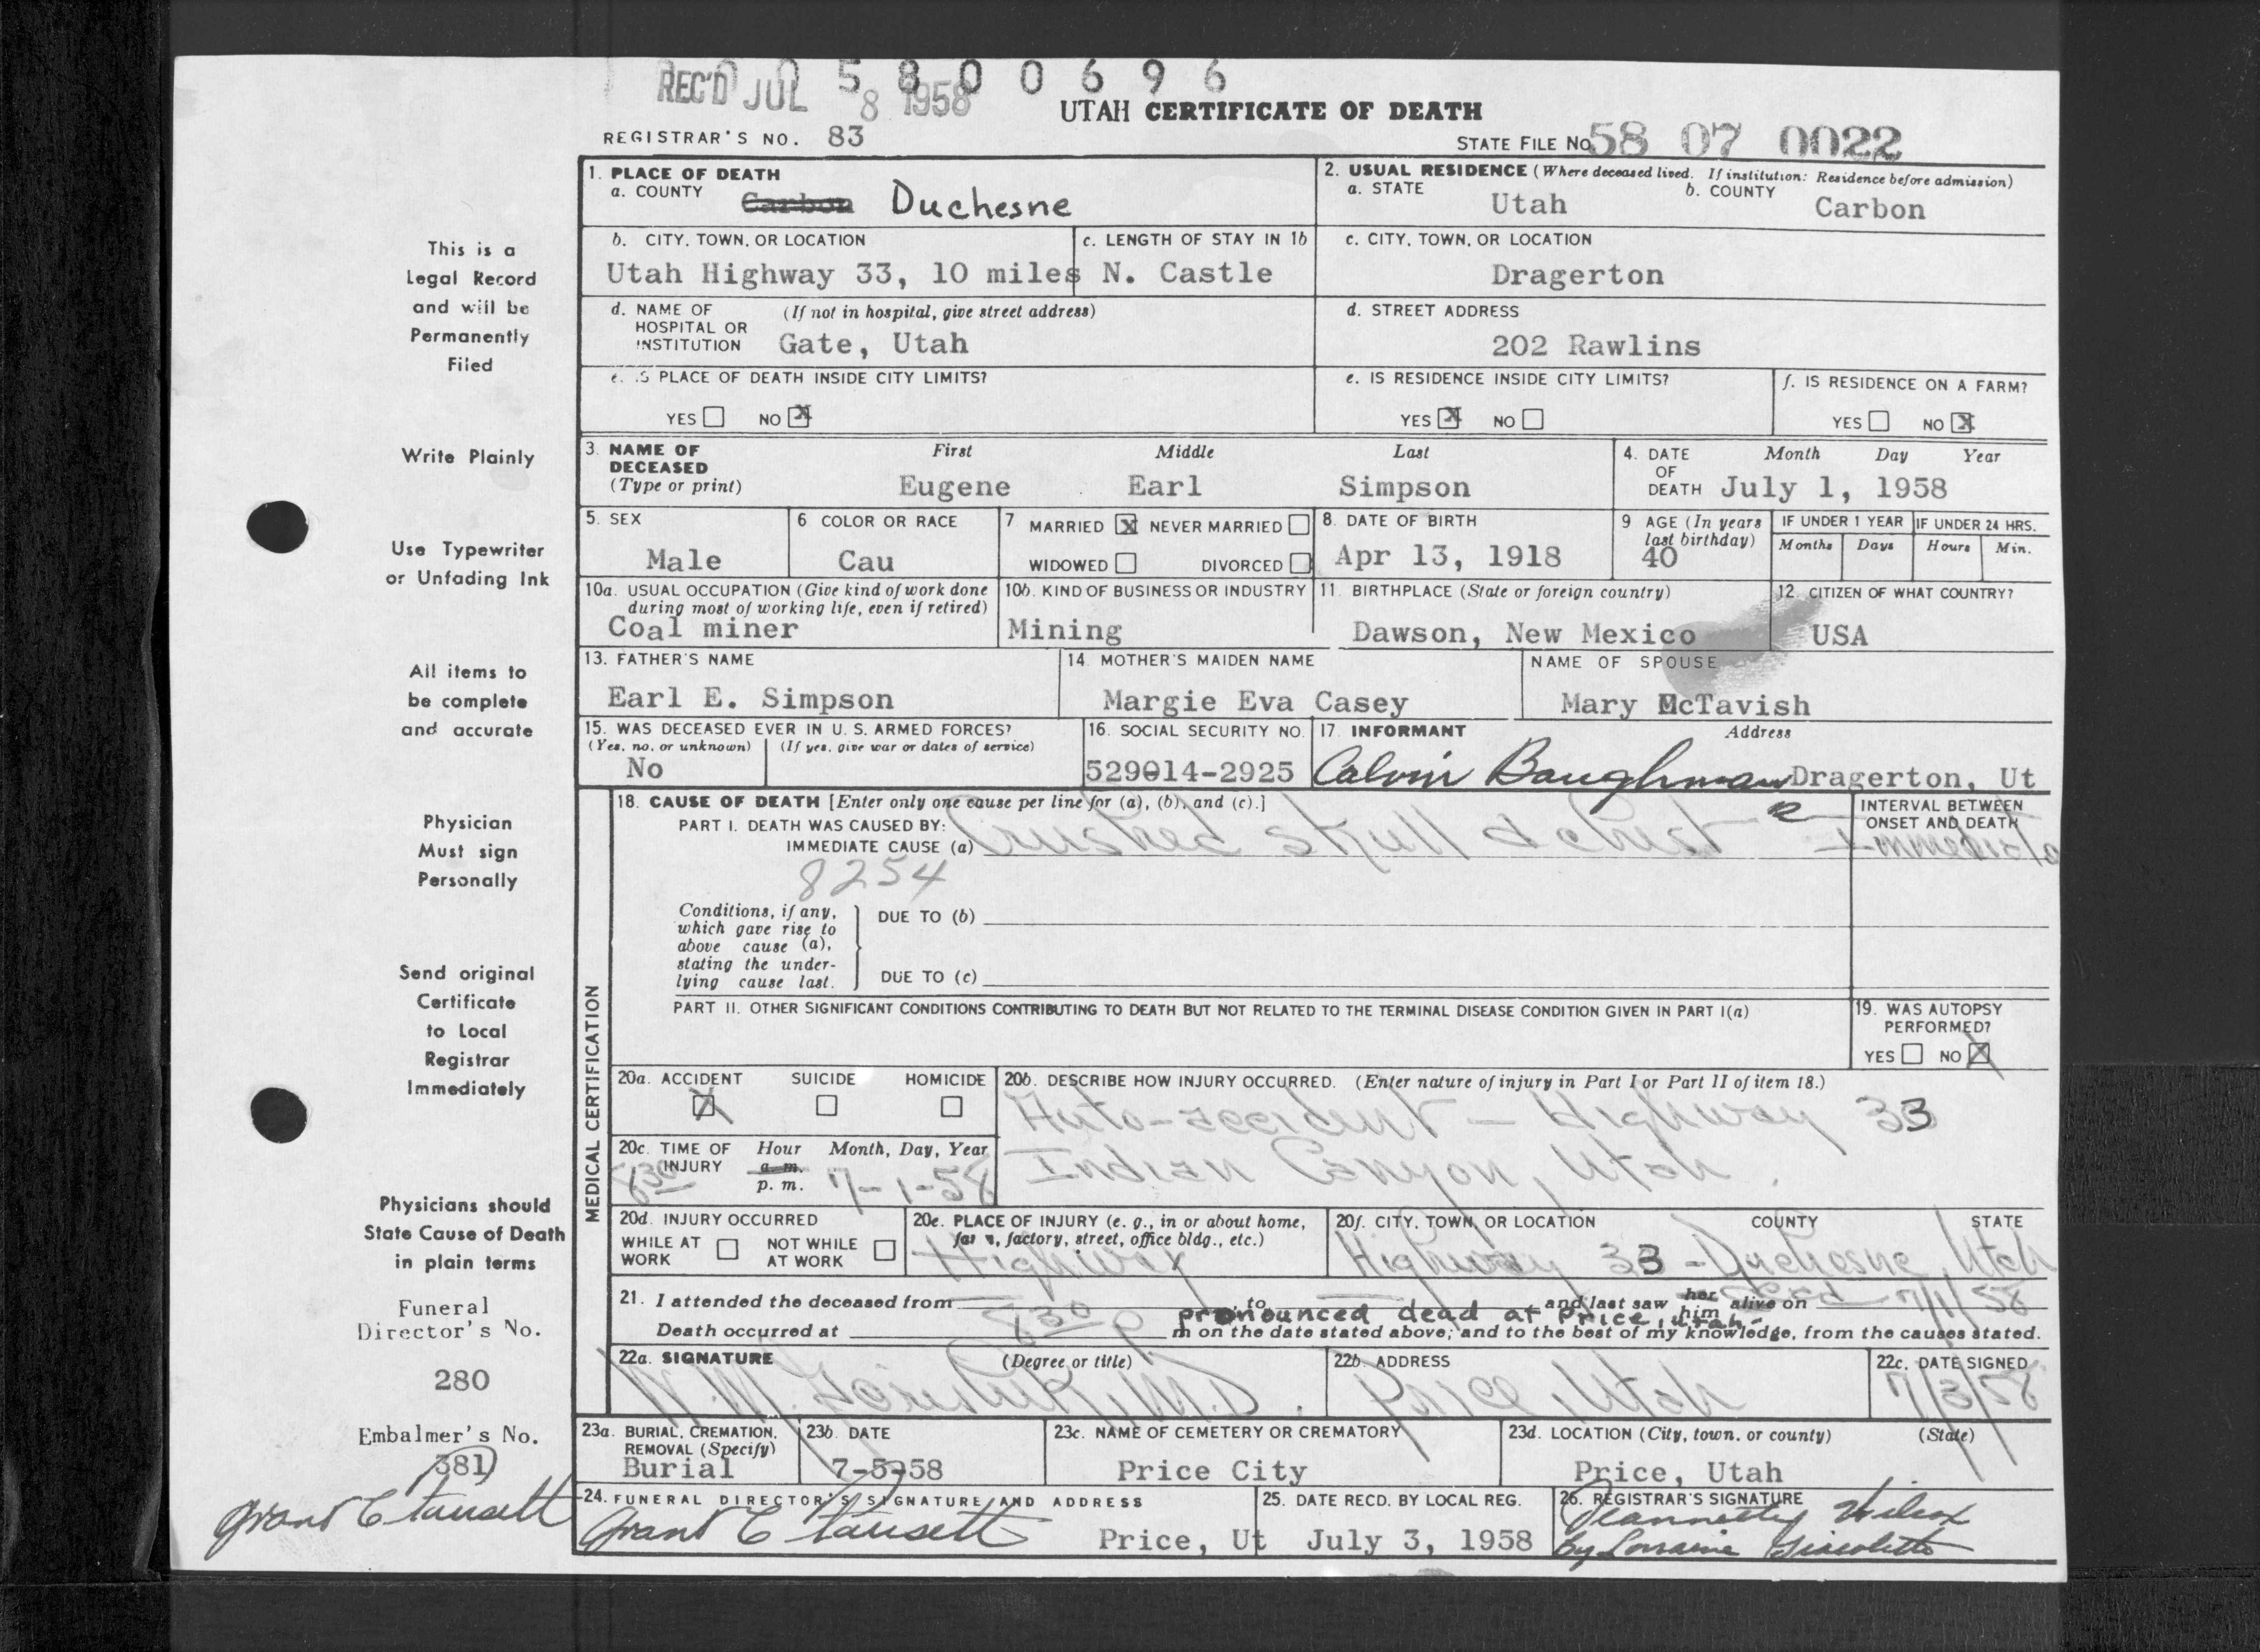 REC'D JUL 8 1958
0 0 5 8 0 0 6 9 6
UTAH CERTIFICATE OF DEATH
REGISTRAR'S NO. 83
STATE FILE No 58 07 0022
1. PLACE OF DEATH
a. COUNTY Carbon Duchesne
2. USUAL RESIDENCE (Where deceased lived. If institution: Residence before admission)
a. STATE Utah b. COUNTY Carbon
b. CITY, TOWN, OR LOCATION c. LENGTH OF STAY IN 1b
Utah Highway 33, 10 miles N. Castle
c. CITY, TOWN, OR LOCATION
Dragerton
d. NAME OF HOSPITAL OR INSTITUTION (If not in hospital, give street address)
Gate, Utah
d. STREET ADDRESS
202 Rawlins
e. IS PLACE OF DEATH INSIDE CITY LIMITS?
YES NO X
e. IS RESIDENCE INSIDE CITY LIMITS?
YES X NO
f. IS RESIDENCE ON A FARM?
YES NO X
3. NAME OF DECEASED (Type or print)
First Middle Last
Eugene Earl Simpson
4. DATE OF DEATH Month Day Year
July 1, 1958
5. SEX
Male
6 COLOR OR RACE
Cau
7 MARRIED X NEVER MARRIED
WIDOWED DIVORCED
8. DATE OF BIRTH
Apr 13, 1918
9 AGE (In years last birthday)
40
IF UNDER 1 YEAR
Months Days
IF UNDER 24 HRS.
Hours Min.
10a. USUAL OCCUPATION (Give kind of work done during most of working life, even if retired)
Coal miner
10b. KIND OF BUSINESS OR INDUSTRY
Mining
11. BIRTHPLACE (State or foreign country)
Dawson, New Mexico
12. CITIZEN OF WHAT COUNTRY?
USA
13. FATHER'S NAME
Earl E. Simpson
14. MOTHER'S MAIDEN NAME
Margie Eva Casey
NAME OF SPOUSE
Mary McTavish
15. WAS DECEASED EVER IN U. S. ARMED FORCES?
(Yes, no, or unknown) (If yes, give war or dates of service)
No
16. SOCIAL SECURITY NO.
529014-2925
17. INFORMANT Address
Calvin Baughman Dragerton, Ut
18. CAUSE OF DEATH [Enter only one cause per line for (a), (b), and (c).]
PART I. DEATH WAS CAUSED BY:
IMMEDIATE CAUSE (a) Crushed skull & chest
INTERVAL BETWEEN ONSET AND DEATH
Immediate
8254
Conditions, if any, which gave rise to above cause (a), stating the underlying cause last.
DUE TO (b)
DUE TO (c)
PART II. OTHER SIGNIFICANT CONDITIONS CONTRIBUTING TO DEATH BUT NOT RELATED TO THE TERMINAL DISEASE CONDITION GIVEN IN PART I(a)
19. WAS AUTOPSY PERFORMED?
YES NO X
MEDICAL CERTIFICATION
20a. ACCIDENT SUICIDE HOMICIDE
X
20b. DESCRIBE HOW INJURY OCCURRED. (Enter nature of injury in Part I or Part II of item 18.)
Auto-accident - Highway 33
Indian Canyon, Utah.
20c. TIME OF INJURY Hour Month, Day, Year
a. m.
p. m.
8 30 7-1-58
20d. INJURY OCCURRED
WHILE AT WORK NOT WHILE AT WORK
20e. PLACE OF INJURY (e. g., in or about home, farm, factory, street, office bldg., etc.)
Highway
20f. CITY, TOWN, OR LOCATION COUNTY STATE
Highway 33 - Duchesne, Utah
21. I attended the deceased from to and last saw her him alive on dead 7/1/58
pronounced dead at Price, Utah-
Death occurred at 8 30 p m on the date stated above; and to the best of my knowledge, from the causes stated.
22a. SIGNATURE (Degree or title)
M.D.
22b. ADDRESS
Price, Utah
22c. DATE SIGNED
7/3/58
23a. BURIAL, CREMATION, REMOVAL (Specify)
Burial
23b. DATE
7-5-58
23c. NAME OF CEMETERY OR CREMATORY
Price City
23d. LOCATION (City, town, or county) (State)
Price, Utah
24. FUNERAL DIRECTOR'S SIGNATURE AND ADDRESS
Grant C Price, Ut
25. DATE RECD. BY LOCAL REG.
July 3, 1958
26. REGISTRAR'S SIGNATURE
Wilcox
By Lorraine
This is a
Legal Record
and will be
Permanently
Filed
Write Plainly
Use Typewriter
or Unfading Ink
All items to
be complete
and accurate
Physician
Must sign
Personally
Send original
Certificate
to Local
Registrar
Immediately
Physicians should
State Cause of Death
in plain terms
Funeral
Director's No.
280
Embalmer's No.
381
Grant C